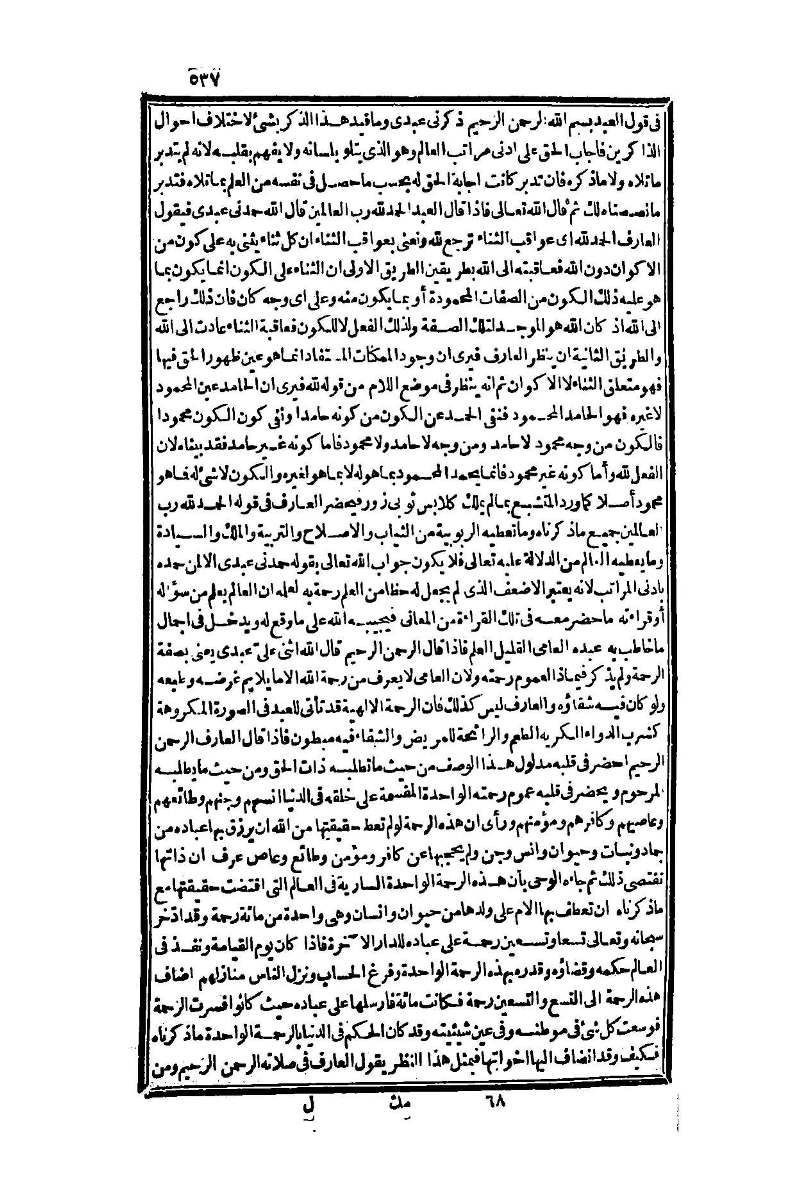 ٥٣٧
فى قول العبد بسم الله الرحمن الرحيم ذكرنى عبدى وما قيد هذا الذكر بشئ لاختلاف احوال
الذاكرين فاجاب الحق على ادنى مراتب العالم وهو الذى يتلو بلسانه ولا يفهم بقلبه لانه لم يتدبر
ماتلاه ولا ماذكره فان تدبر كانت اجابة الحق له بحسب ما حصل فى نفسه من العلم بماتلاه فتدبر
مانصصناه لك ثم قال الله تعالى فاذا قال العبد الحمد لله رب العالمين قال الله حمدنى عبدى فيقول
العارف الحمد لله اى عواقب الثناء ترجع لله ونعنى بعواقب الثناء ان كل ثناء يثنى به على كون من
الاكوان دون الله فعاقبته الى الله بطريقين الطريق الاولى ان الثناء على الكون انما يكون بما
هو عليه ذلك الكون من الصفات المحمودة أو بما يكون منه وعلى اى وجه كان فان ذلك راجع
الى الله اذ كان الله هو الموجد لتلك الصفة ولذلك الفعل لا للكون فعاقبة الثناء عادت الى الله
والطريق الثانية ان ينظر العارف فيرى ان وجود الممكنات المستفاد انما هو عين ظهور الحق فيها
فهو متعلق الثناء لا الاكوان ثم انه ينظر فى موضع اللام من قوله لله فيرى ان الحامد عين المحمود
لا غيره فهو الحامد المحمود فنفى الحمد عن الكون من كونه حامدا ونفى كون الكون محمودا
فالكون من وجه محمود لا حامد ومن وجه لا حامد ولا محمود فاما كونه غير حامد فقد بيناه لان
الفعل لله وأما كونه غير محمود فانما يحمد المحمود بما هو له لا بما هو لغيره والكون لا شئ له فما هو
محمود أصلا كما ورد المتشبع بما لم يملك كلابس ثوبى زور فيحضر العارف فى قوله الحمد لله رب
العالمين جميع ماذكرناه وما تعطيه الربوبية من الثياب والاصلاح والتربية والملك والسيادة
وما يعطيه العالم من الدلالة عليه تعالى فلا يكون جواب الله تعالى بقوله حمدنى عبدى الا لمن حمده
بادنى المراتب لانه يعتبر الاضعف الذى لم يجعل له حظا من العلم رحمة به لعله ان العالم يعلم من سؤاله
أو قراءته ما حضر معه فى تلك القراءة من المعانى فيجيبه الله على ما وقع له ويدخل فى اجمال
ماخاطب به عبده العامى القليل العلم فاذا قال الرحمن الرحيم قال الله اثنى علىّ عبدى يعنى بصفة
الرحمة ولم يذكر فيما ذا لعموم رحمته ولان العامى لا يعرف من رحمة الله الا ما يلايم غرضه وطبعه
ولو كان فيه شقاؤه والعارف ليس كذلك فان الرحمة الالهية قد تأتى للعبد فى الصورة المكروهة
كشرب الدواء الكريه الطعم والرائحة للمريض والشفاء فيه مبطون فاذا قال العارف الرحمن
الرحيم احضر فى قلبه مدلول هذا الوصف من حيث ما تطلبه ذات الحق ومن حيث ما يطلبه
المرحوم ويحضر فى قلبه عموم رحمته الواحدة المقسمة على خلقه فى الدنيا انسهم وجنهم وطائعهم
وعاصيهم وكافرهم ومؤمنهم ورأى ان هذه الرحمة لو لم تعط حقيقتها من الله ان يرزق بها عباده من
جماد ونبات وحيوان وانس وجن ولم يحجبها عن كافر ومؤمن وطائع وعاص عرف ان ذاتها
تقتضى ذلك ثم جاءه الوحى بأن هذه الرحمة الواحدة السارية فى العالم التى اقتضت حقيقتها مع
ماذكرناه ان تعطف بها الام على ولدها من حيوان وانسان وهى واحدة من مائة رحمة وقد ادّخر
سبحانه وتعالى تسعا وتسعين رحمة على عباده للدار الآخرة فاذا كان يوم القيامة ونفذ فى
العالم حكمه وقضاؤه وقدره بهذه الرحمة الواحدة وفرغ الحساب ونزل الناس منازلهم اضاف
هذه الرحمة الى التسع والتسعين رحمة فكانت مائة فارسلها على عباده حيث كانوا فسرت الرحمة
فوسعت كل شئ فى موطنه وفى عين شيئيته وقد كان الحكم فى الدنيا بالرحمة الواحدة ماذكرناه
فكيف وقد انضاف اليها اخواتها فبمثل هذا النظر يقول العارف فى صلاته الرحمن الرحيم ومن
٦٨ مك ل